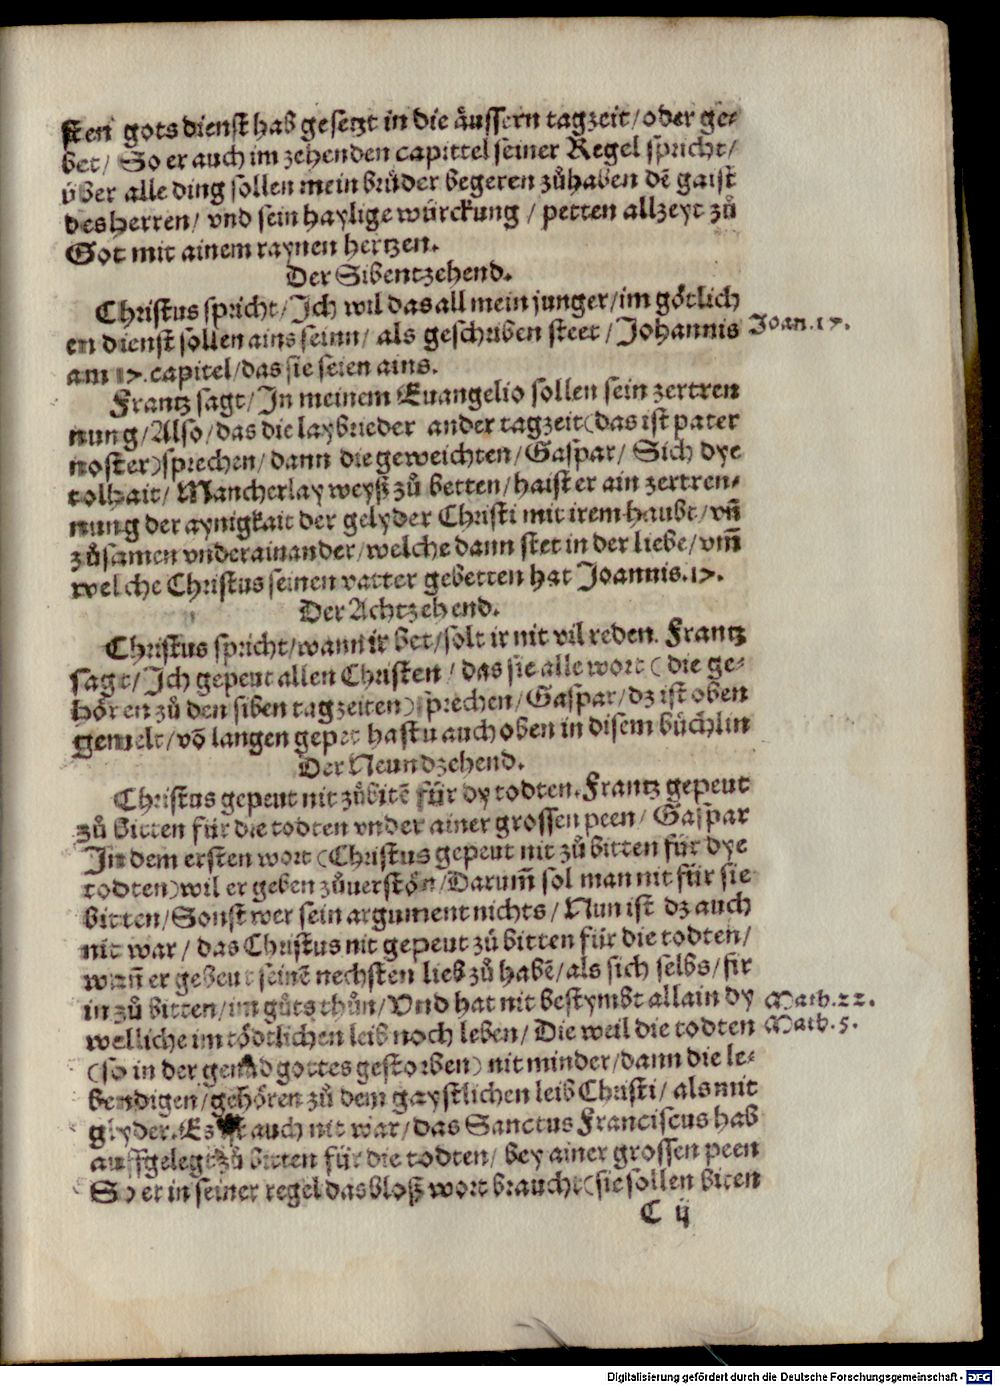 sten gots dienst hab gesetzt in die äussern tagzeit/ oder ge-
bet/ So er auch im zehenden capittel seiner Regel spricht/
über alle ding sollen mein brůder begeren zůhaben dẽ gaist
des herren/ vnd sein haylige würckung / petten allzeyt zů
Got mit ainem raynen hertzen.
Der Sibentzehend.
Christus spricht/ Ich wil das all mein junger/ im götlich
en dienst sollen ains seinn/ als geschriben steet / Johannis
Joan. 17.
am 17. capitel/ das sie seien ains.
Frantz sagt/ In meinem Euangelio sollen sein zertren
nung/ Also/ das die laybrieder ander tagzeit (das ist pater
noster) sprechen/ dann die geweichten/ Gaspar/ Sich dye
tolhait/ Mancherlay weyß zů betten/ haist er ain zertren-
nung der aynigkait der gelyder Christi mit irem haubt/ vñ
zůsamen vnderainander/ welche dann stet in der liebe/ vm̃
welche Christus seinen vatter gebetten hat Joannis. 17.
Der Achtzehend.
Christus spricht/ wann ir bet/ solt ir nit vil reden. Frantz
sagt/ Ich gepeut allen Christen / das sie alle wort ( die ge-
hören zů den siben tagzeiten) sprechen/ Gaspar/ dz ist oben
gemelt/ võ langen gepet hastu auch oben in disem büchlin
Der Neundzehend.
Christus gepeut nit zůbitẽ für dy todten. Frantz gepeut
zů bitten für die todten vnder ainer grossen peen/ Gaspar
In dem ersten wort (Christus gepeut nit zů bitten für dye
todten) wil er geben zůuerstön/ Darum̃ sol man nit für sie
bitten/ Sonst wer sein argument nichts/ Nun ist dz auch
nit war / das Christus nit gepeut zů bitten für die todten/
wañ er gebeut seinẽ nechsten lieb zů habẽ/ als sich selbs/ fir
in zů bitten/ im gůts thůn/ Vnd hat nit bestymbt allain dy
Math. 22.
welliche im tödtlichen leib noch leben/ Die weil die todten
Math. 5.
(so in der genad gottes gestorben) nit minder/ dann die le-
bendigen/ gehören zů dem gaystlichen leib Christi/ als mit
glyder. Es ist auch nit war/ das Sanctus Franciscus hab
auffgelegt zů bitten für die todten/ bey ainer grossen peen
So er in seiner regel das bloß wort braucht (sie sollen biten
C ij
Digitalisierung gefördert durch die Deutsche Forschungsgemeinschaft - DFG